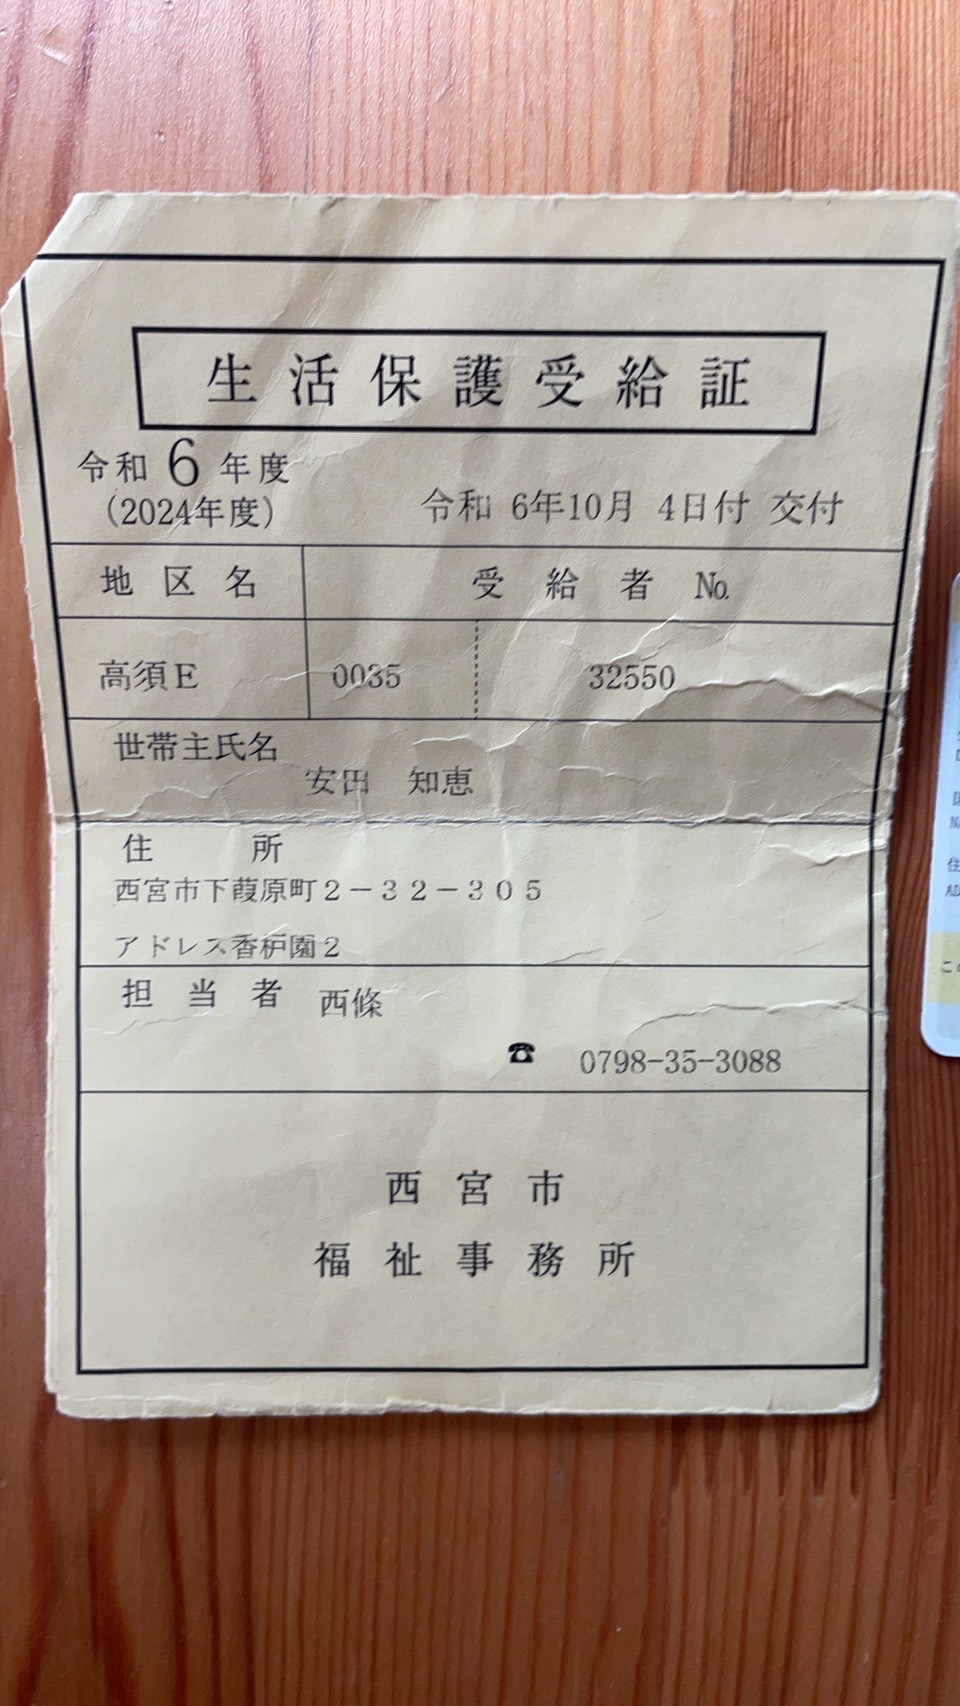 生活保護受給証
令和 6 年度
(2024年度)
令和 6年10月 4日付 交付
地区名 受給者 No.
高須E 0035 32550
世帯主氏名
安田 知恵
住 所
西宮市下葭原町2-32-305
アドレス香枦園2
担当者 西條
☎ 0798-35-3088
西宮市
福祉事務所